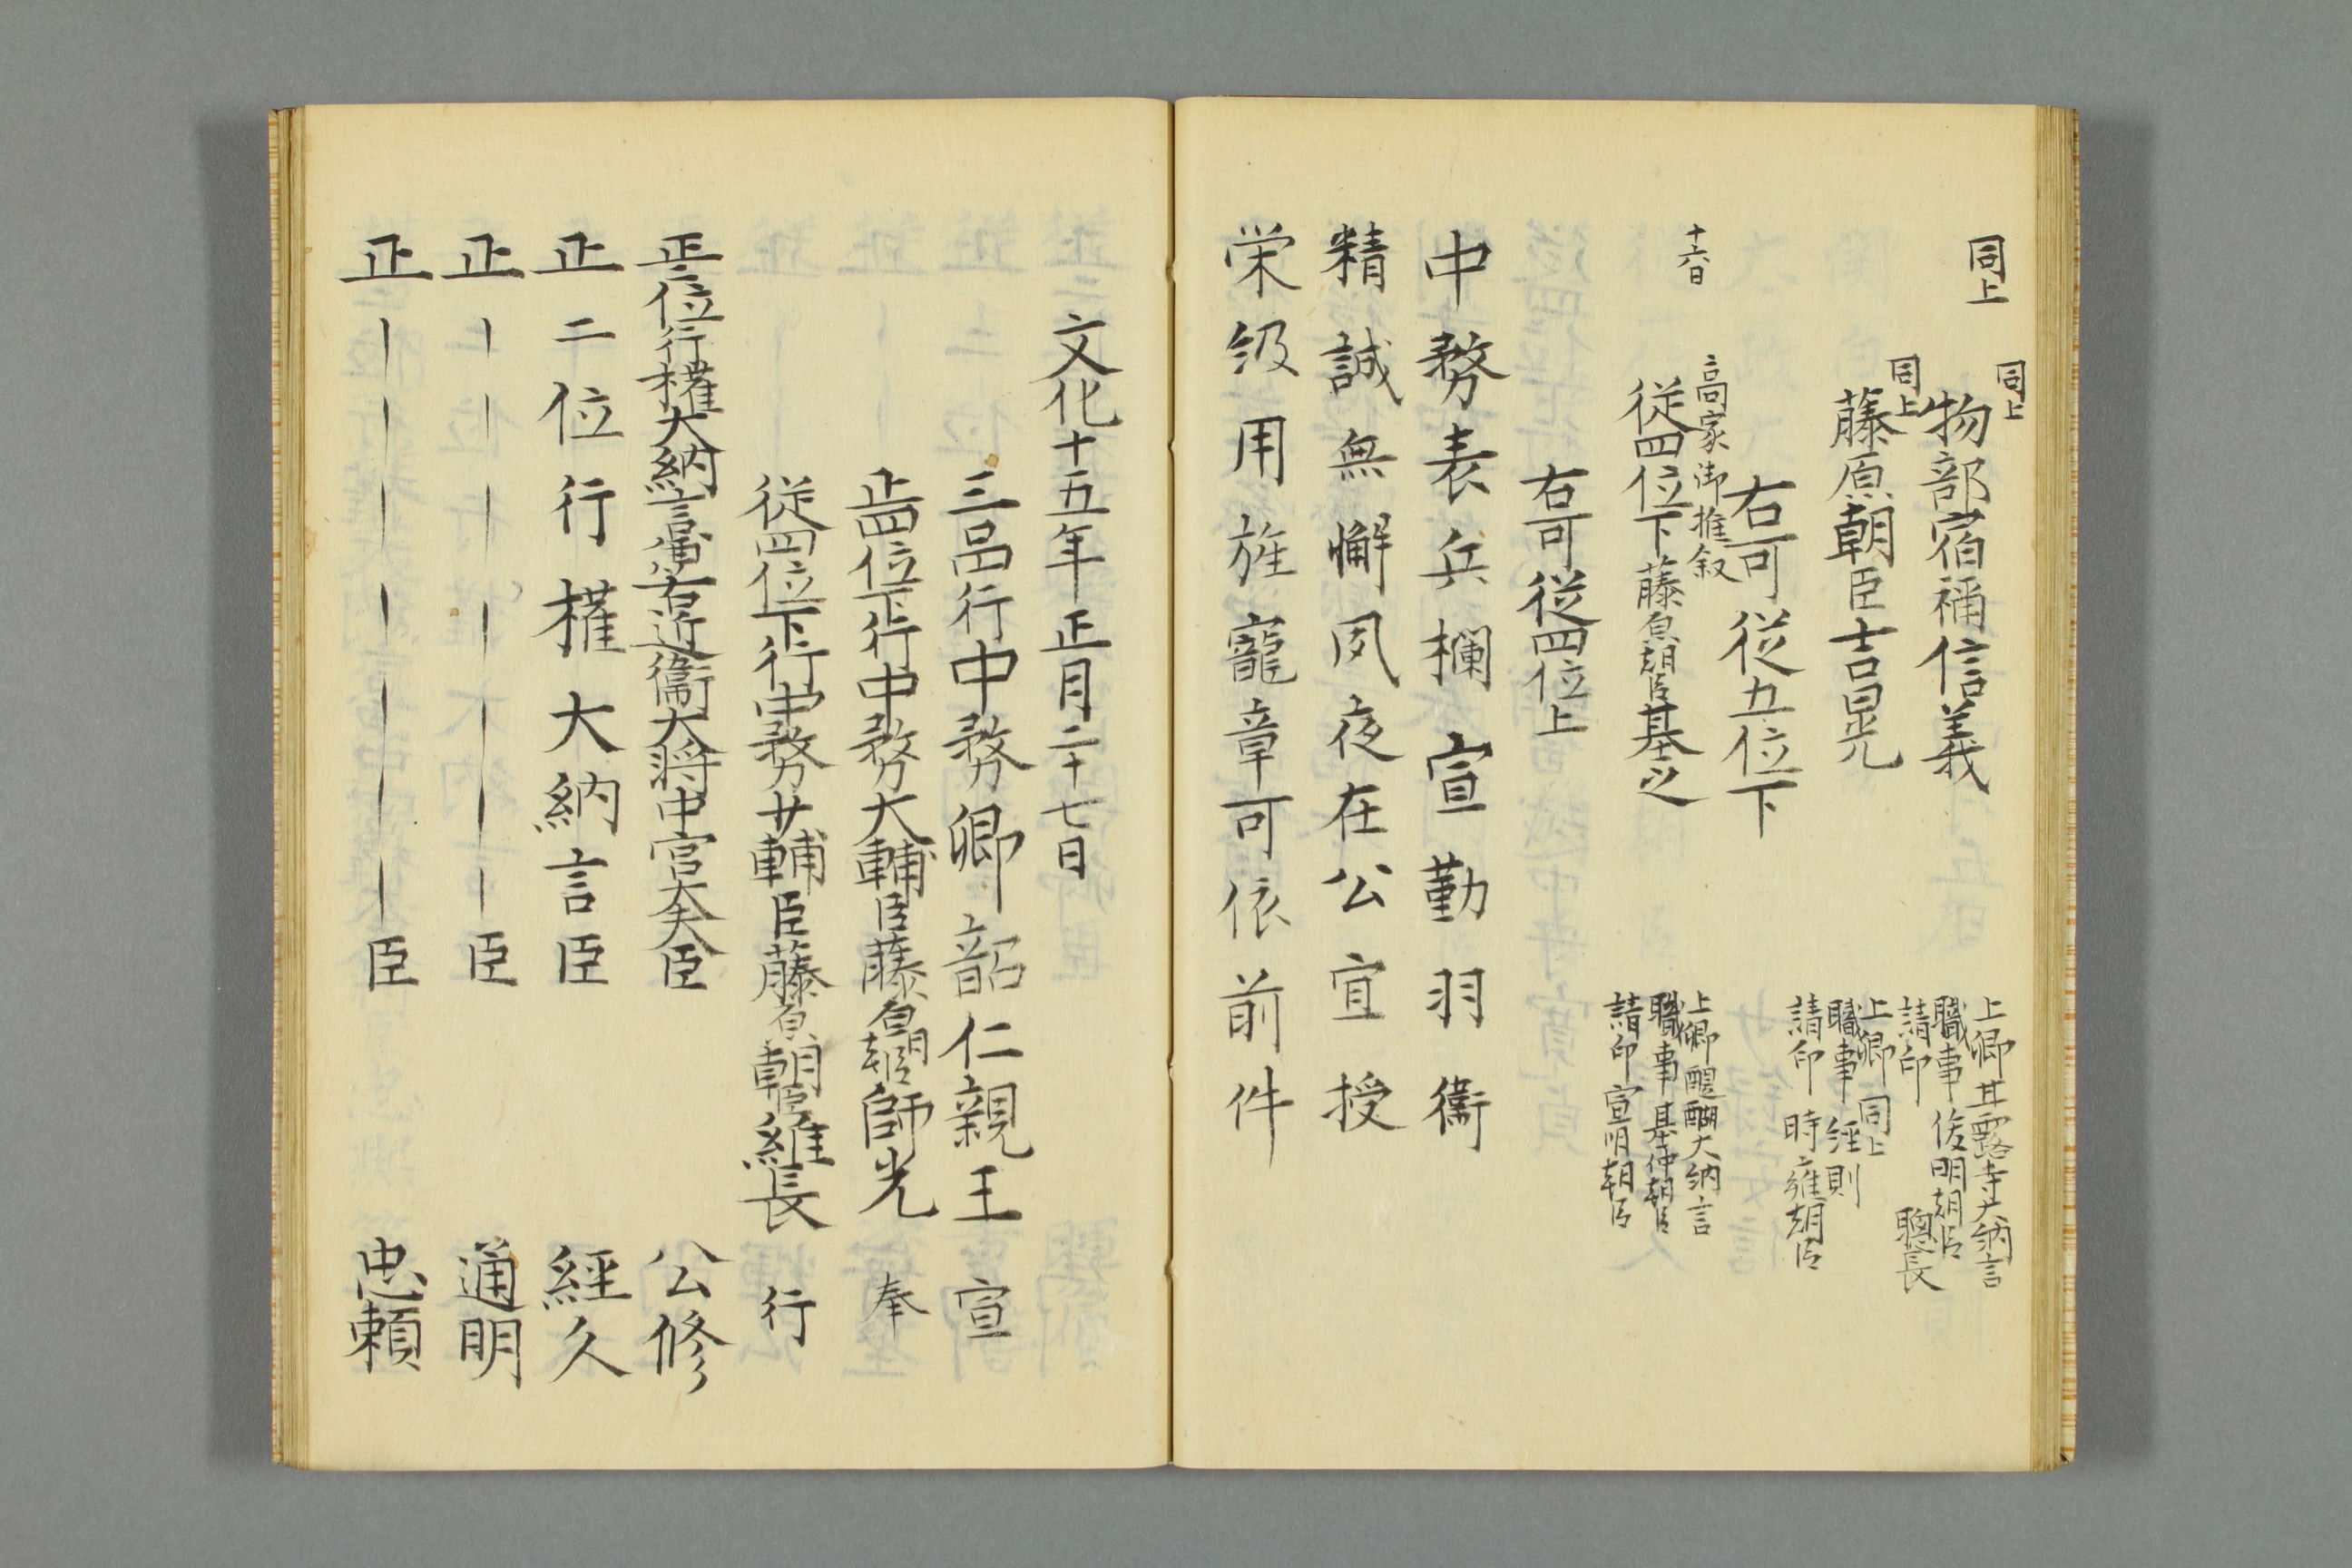 同上
同上
物部宿祢信義
上卿 甘露寺大納言
職事 俊明朝臣
請印 聰長
同上
藤原朝臣吉晃
上卿 同上
職事 経則
請印 時雍朝臣
右可従五位下
十六日
高家御推叙
従四位下藤原朝臣基之
上卿 醍醐大納言
職事 基仲朝臣
請印 宣明朝臣
右可従四位上
中務表兵欄宣勤羽衞
精誠無懈夙夜在公宜授
栄級用旌寵章可依前件
文化十五年正月二十七日
三品行中務卿韶仁親王 宣
正四位下行中務大輔臣藤原朝臣師光 奉
従四位下行中務少輔臣藤原朝臣維長 行
正二位行権大納言兼右近衞大将中宮大夫臣 公修
正二位行權大納言臣 經久
正――――――臣 通明
正――――――臣 忠頼